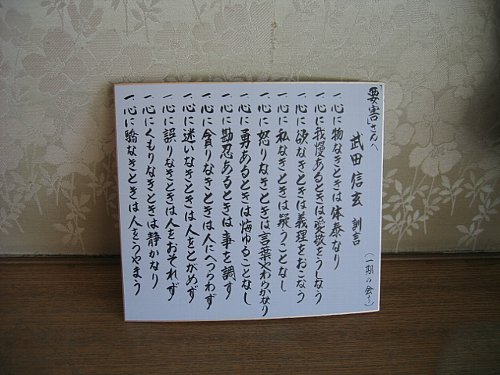 「要害」さんへ
武田信玄 訓言
(一期の会り)
一、心に物なきときは体泰なり
一、心に我慢あるときは愛敬をうしなう
一、心に欲なきときは義理をおこなう
一、心に私なきときは疑うことなし
一、心に怒りなきときは言葉やわらかなり
一、心に勇あるときは悔ゆることなし
一、心に勘忍あるときは事を調す
一、心に貪りなきときは人にへつらわず
一、心に迷いなきときは人をとがめず
一、心に誤りなきときは人をおそれず
一、心にくもりなきときは静かなり
一、心に驕なきときは人をうやまう